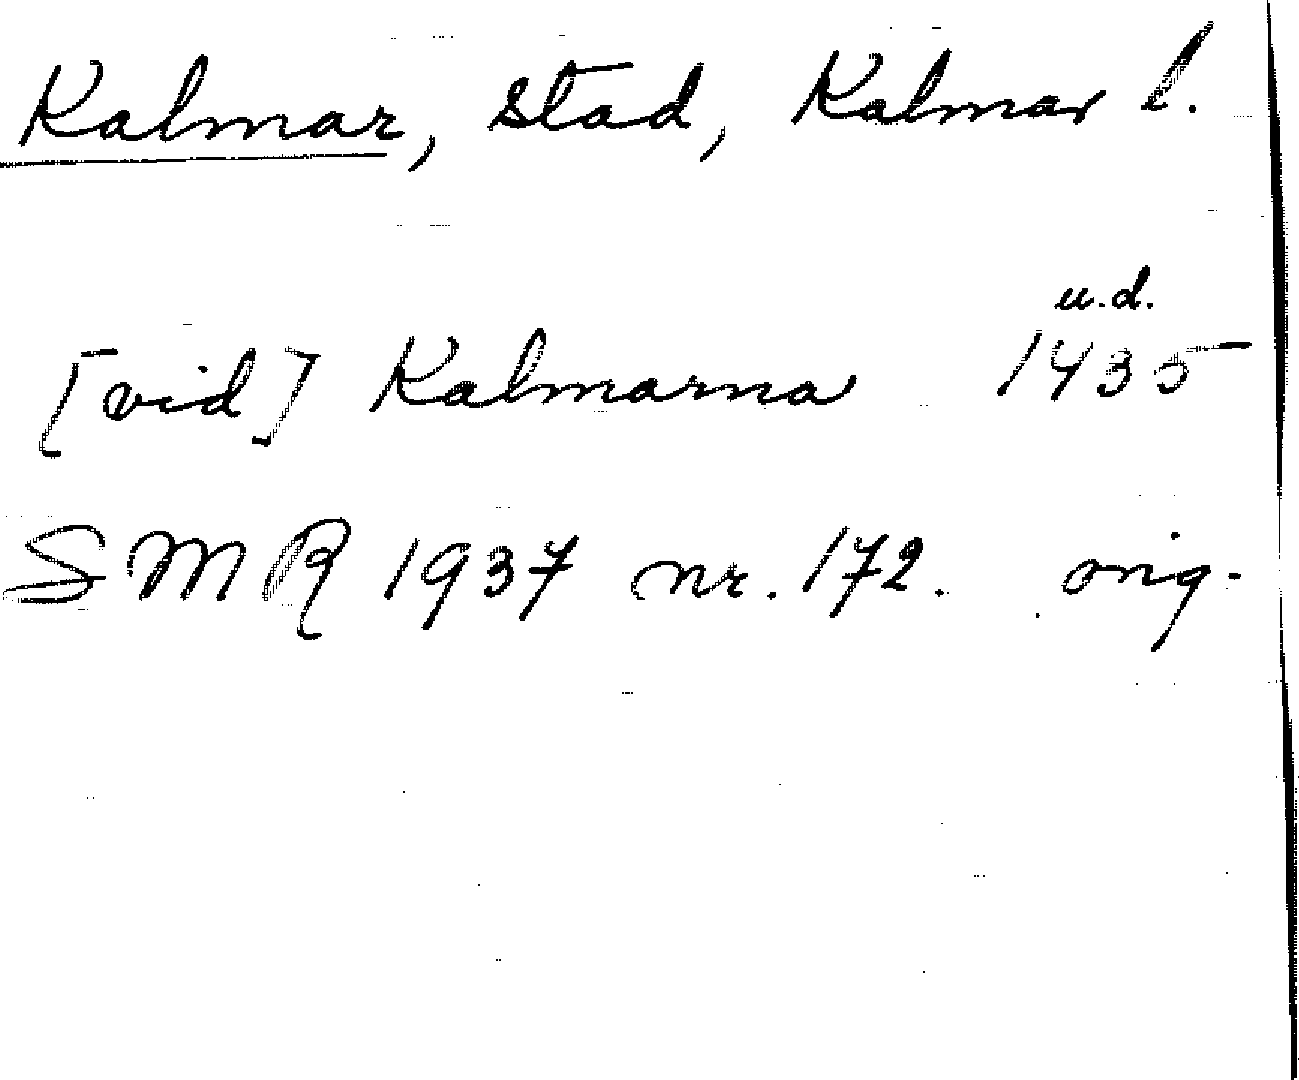 Kalmar, stad, Kalmar l.
u.d.
[vid] Kalmarna 1435
SMR 1937 nr. 172. orig.